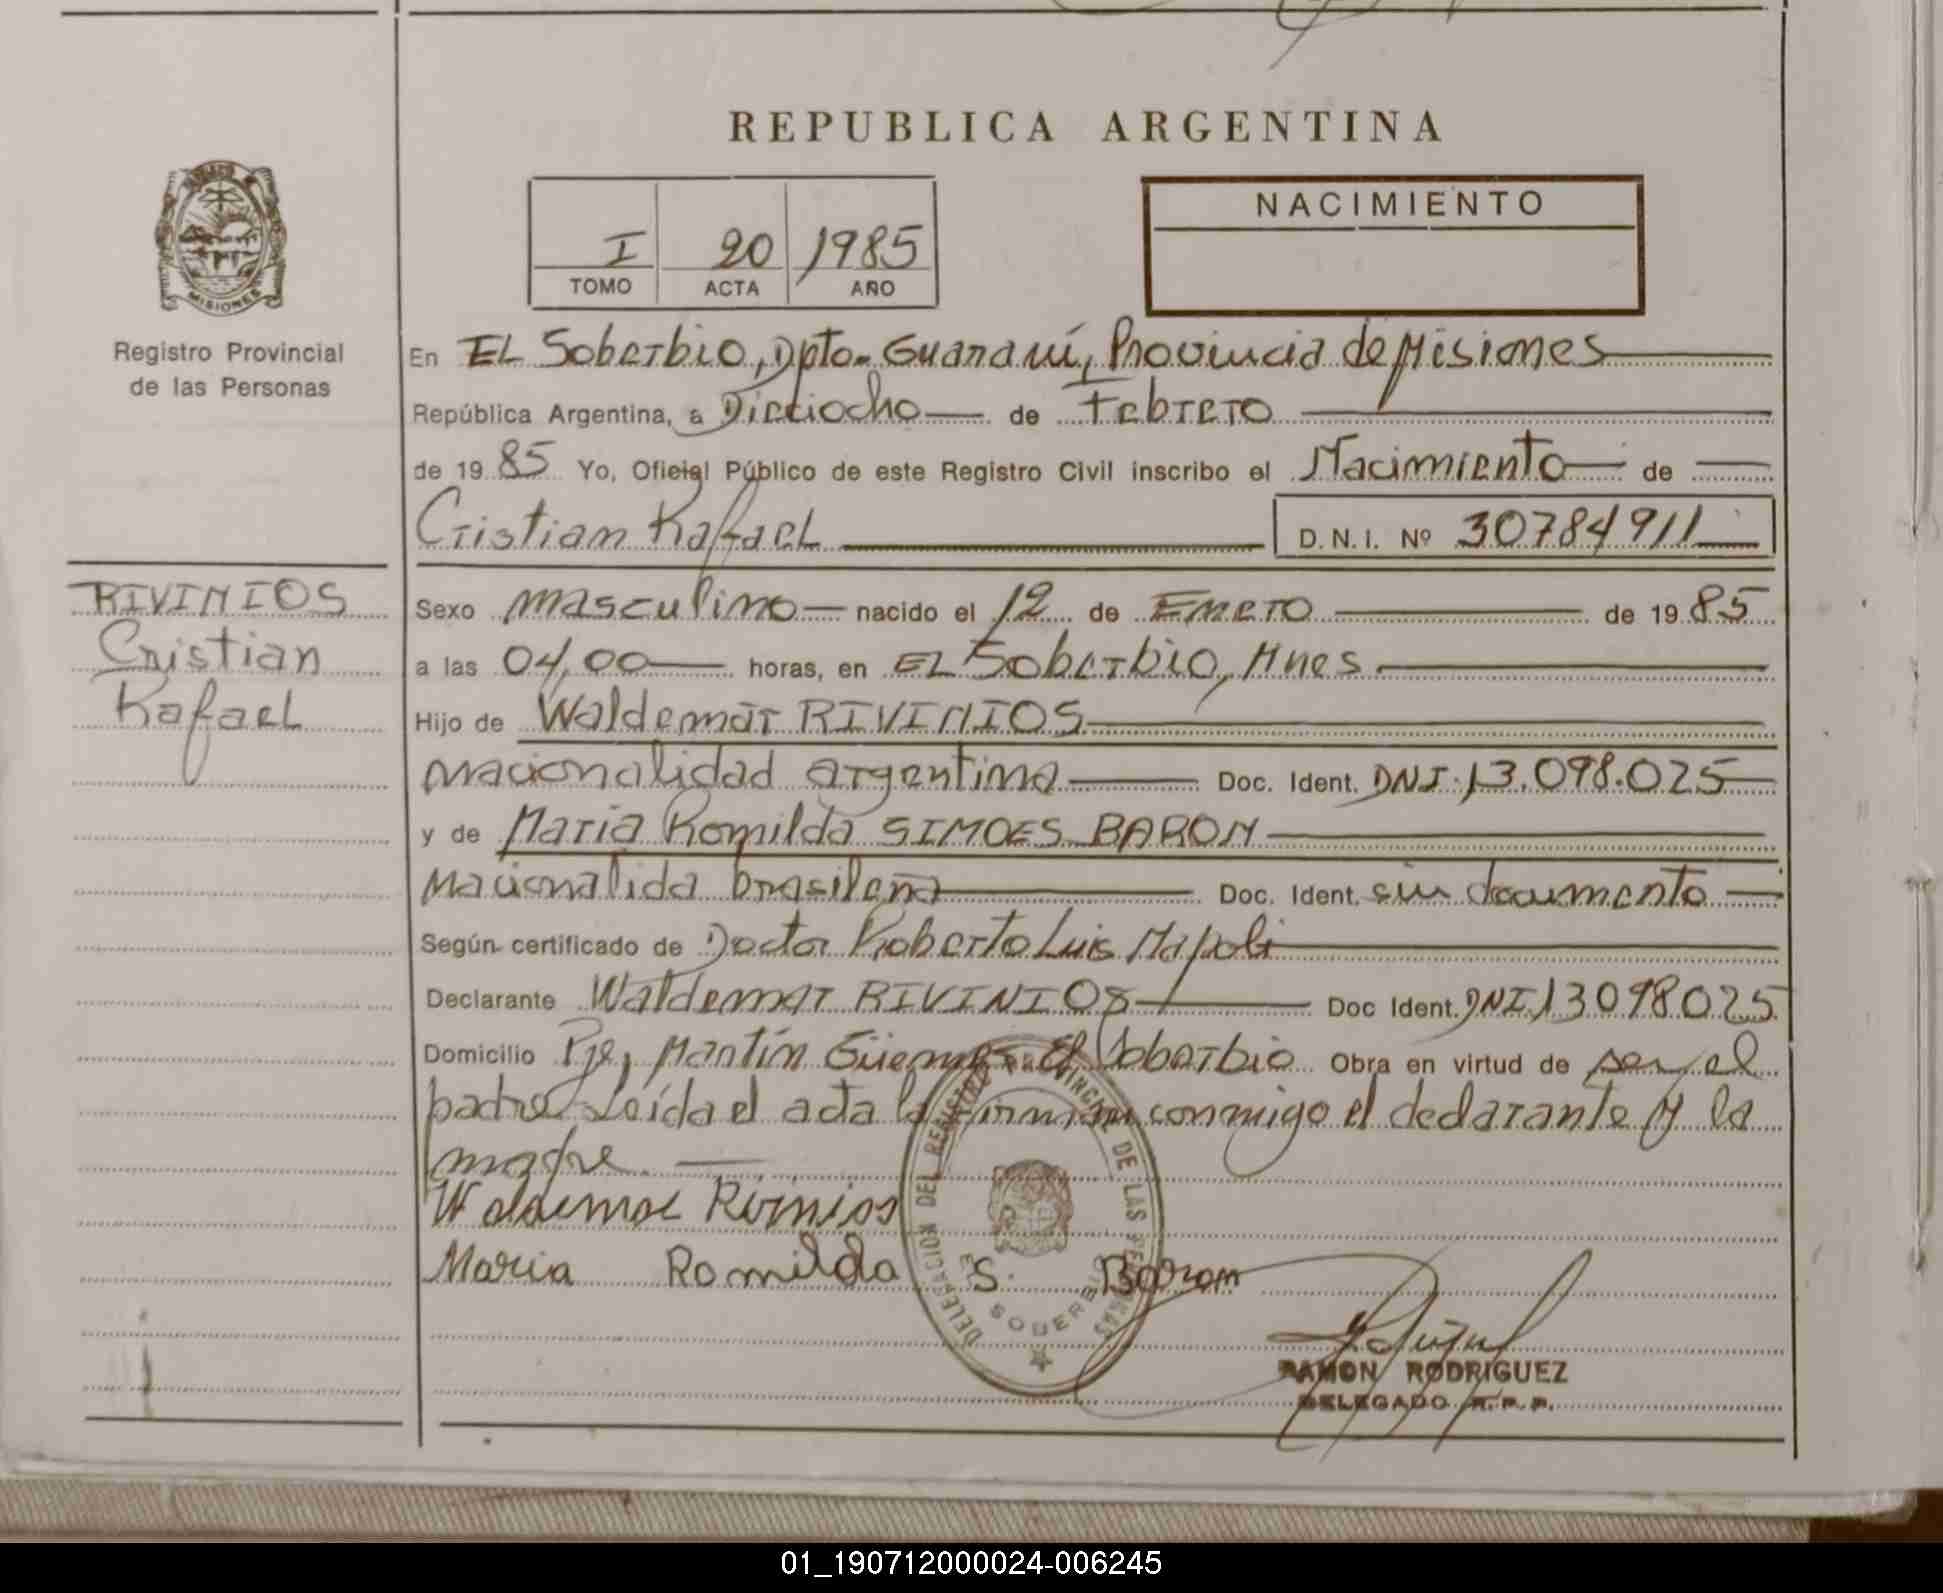 REPUBLICA ARGENTINA
MISIONES
Registro Provincial
de las Personas
I 20 1985
TOMO ACTA AÑO
NACIMIENTO
En EL Soberbio, Dpto. Guaraní, Provincia de Misiones
República Argentina, a Dieciocho de Febrero
de 1985 Yo, Oficial Público de este Registro Civil inscribo el Nacimiento de
Cristian Rafael D.N.I. Nº 30784911
RIVINIOS
Cristian
Rafael
Sexo masculino nacido el 12 de Enero de 1985
a las 04,00 horas, en EL Soberbio, Mnes.
Hijo de Waldemar RIVINIOS
nacionalidad argentina Doc. Ident. DNI. 13.098.025
y de Maria Romilda SIMOES BARON
Nacionalida brasileña Doc. Ident. sin documento
Según certificado de Doctor Roberto Luis Napoli
Declarante Waldemar RIVINIOS Doc Ident. DNI 13098025
Domicilio Pje, Martín Güemes El Soberbio Obra en virtud de ser el
padre. Leída el acta la firman conmigo el declarante y la
madre.
Waldemar Rivinios
Maria Romilda S. Baron
DELEGACION DEL REGISTRO PROVINCIAL DE LAS PERSONAS
EL SOBERBIO
RAMON RODRIGUEZ
DELEGADO R.P.P.
01_190712000024-006245